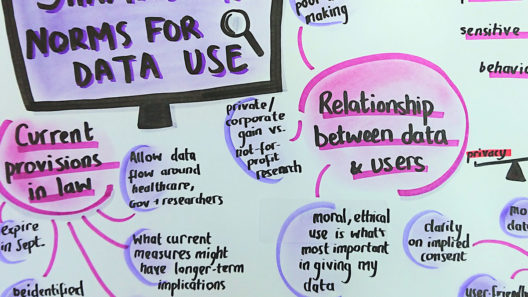 NORMS FOR
DATA USE
making
sensitive
Current
provisions
in law
Allow data
flow around
healthcare,
Gov + researchers
private/
corporate
gain vs.
not-for-
profit
research
Relationship
between data
& users
privacy
expire
in Sept.
What current
measures might
have longer-term
implications
moral, ethical
use is what's
most important
in giving my
data
clarity
on implied
consent